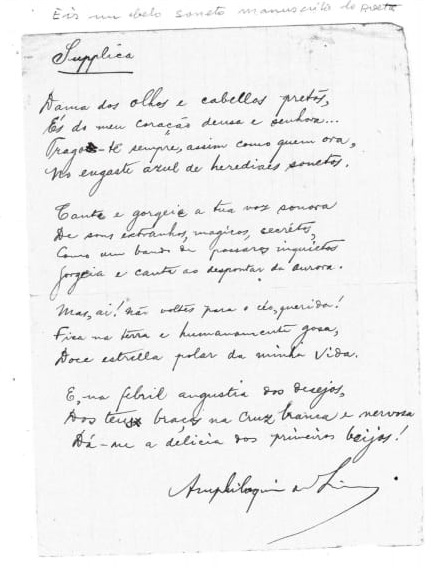 Eis um belo soneto manuscrito do Poeta
Supplica
Dama dos olhos e cabellos pretos,
És do meu coração deusa e senhora...
Trago-te sempre, assim como quem ora,
No engaste azul de herediaes sonetos.
Cante e gorgeie a tua voz sonora
De sons extranhos, magicos, secrétos,
Como um bando de passaros inquietos
Gorgeia e canta ao despontar da aurora.
Mas, ai! não voltes para o céo, querida!
Fica na terra e humanamente gosa,
Doce estrella polar da minha vida.
E, na febril angustia dos desejos,
Dos teus braços na cruz branca e nervosa
Dá-me a délicia dos primeiros beijos!
Amphiloquio de